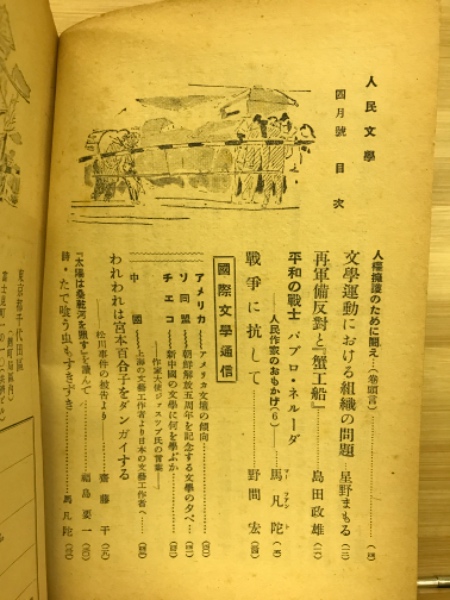 人民文學
四月號 目次
人權擁護のために鬪え…(卷頭言)
文學運動における組織の問題 星野まもる
再軍備反對と『蟹工船』 島田政雄
平和の戰士 パブロ・ネルーダ
―人民作家のおもかげ(6) 馬凡陀
戰爭に抗して 野間宏
國際文學通信
アメリカ アメリカ文壇の傾向
ソ同盟 朝鮮解放五周年を記念する文學の夕べ
チエコ 新中國の文學に何を學ぶか
―作家大使ジェスツプ氏の言葉―
中國 上海の文藝工作者より日本の文藝工作者へ
われわれは宮本百合子をダンガイする
松川事件の被告より 齋藤千
『太陽は桑乾河を照す』を讀んで 福島要一
詩・たで喰う虫もすきずき 馬凡陀
東京都千代田區
富士見町